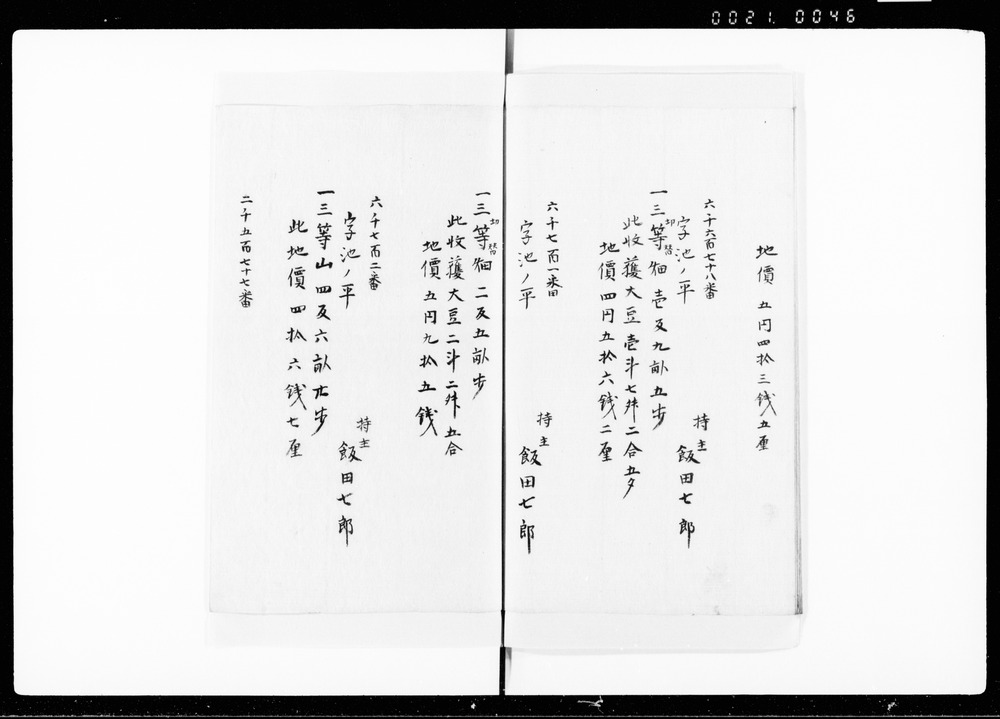 0021. 0046
地價 五円四拾三銭五厘
六千六百七十八番
字池ノ平
持主 飯田七郎
一三等切替畑 壱反九畝五歩
此收獲大豆壱斗七舛二合五夕
地價四円五拾六銭二厘
六千七百一番
字池ノ平
持主 飯田七郎
一三等切替畑 二反五畝歩
此收獲大豆二斗二舛五合
地價五円九拾五銭
六千七百二番
字池ノ平
持主 飯田七郎
一三等山四反六畝廿歩
此地價四拾六銭七厘
二千五百七十七番